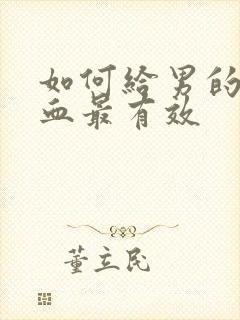 如何给男的
血最有效
董立民